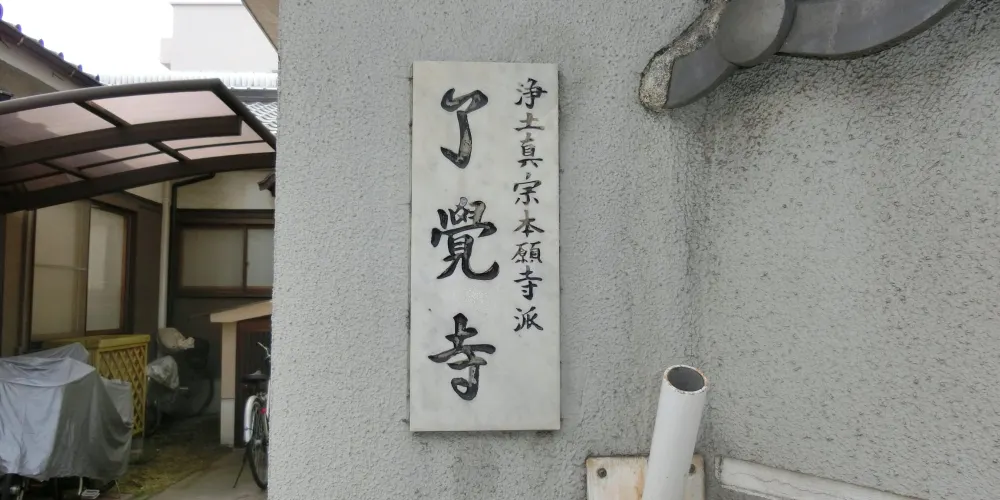 浄土真宗本願寺派
了覺寺